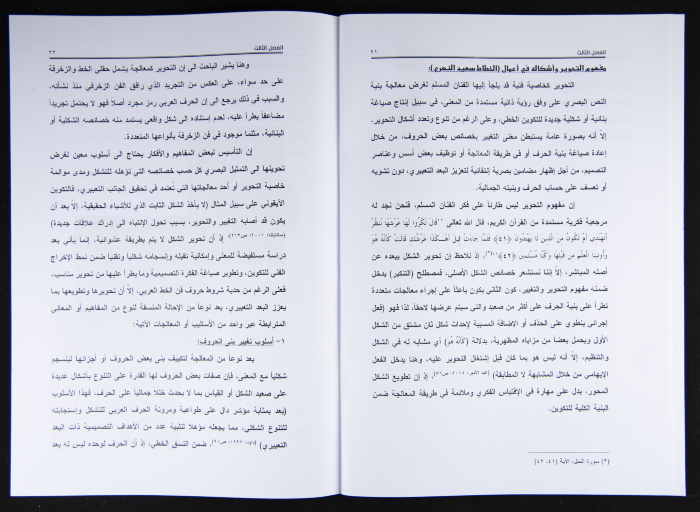 الفصل الثالث
٢١
مفهوم التحوير وأشكاله في أعمال (الخطاط سعيد النهري):
التحوير كخاصية فنية قد يلجأ إليها الفنان المسلم لغرض معالجة بنية
النص البصري على وفق رؤية ذاتية مستمدة من المعنى، في سبيل إنتاج صياغة
بنائية أو شكلية جديدة للتكوين الخطي، وعلى الرغم من تنوع وتعدد أشكال التحوير،
إلا أنه بصورة عامة يستبطن معنى التغيير بخصائص بعض الحروف، من خلال
إعادة صياغة بنية الحرف أو في طريقة المعالجة أو توظيف بعض أسس وعناصر
التصميم، من أجل إظهار مضامين بصرية إنتقائية لتعزيز البعد التعبيري، دون تشويه
أو تعسف على حساب الحرف وبنيته الجمالية.
إن مفهوم التحوير ليس طارئاً على فكر الفنان المسلم، فنحن نجد له
مرجعية فكرية مستمدة من القرآن الكريم، قال الله تعالى "قَالَ نَكِّرُوا لَهَا عَرْشَهَا نَنظُرْ
أَتَهْتَدِي أَمْ تَكُونُ مِنَ الَّذِينَ لَا يَهْتَدُونَ ﴿٤١﴾ فَلَمَّا جَاءَتْ قِيلَ أَهَكَذَا عَرْشُكِ قَالَتْ كَأَنَّهُ هُوَ
وَأُوتِينَا الْعِلْمَ مِن قَبْلِهَا وَكُنَّا مُسْلِمِينَ ﴿٤٢﴾"(*)، إذ نلاحظ إن تحوير الشكل يبعده عن
أصله المباشر، إلا إننا نستشعر خصائص الشكل الأصلي، فمصطلح (التنكير) يدخل
ضمنه مفهوم التحوير والتغيير، كون الثاني يكون باعثاً على إجراء معالجات متعددة
تطرأ على بنية الحرف على أكثر من صعيد والتي سيتم عرضها لاحقاً، لذا فهو (فعل
إجرائي ينطوي على الحذف أو الإضافة المسببة لإحداث شكل ثان مشتق من الشكل
الأول ويحمل بعضاً من مزاياه المظهرية، بدلالة (كَأَنَّهُ هُوَ) أي مشابه له في الشكل
والتنظيم، إلا أنه ليس هو بما كان قبل إشتغال التحوير عليه، وهنا يدخل الفعل
الإيهامي من خلال المشابهة لا المطابقة)، إذ إن تطويع الشكل
المحور، يدل على مهارة في الإقتباس الفكري وملائمة في طريقة المعالجة ضمن
البنية الكلية للتكوين.
(*) سورة النمل، الآية (٤١، ٤٢)
الفصل الثالث
٢٢
وهنا يشير الباحث الى إن التحوير كمعالجة يشمل حقلي الخط والزخرفة
على حد سواء، على العكس من التجريد الذي رافق الفن الزخرفي منذ نشأته،
والسبب في ذلك يرجع الى إن الحرف العربي رمز مجرد أصلاً فهو لا يحتمل تجريداً
مضاعفاً يطرأ عليه، لعدم إستناده الى شكل واقعي يستمد منه خصائصه الشكلية أو
البنائية، مثلما موجود في فن الزخرفة بأنواعها المتعددة.
إن التأسيس لبعض المفاهيم والأفكار يحتاج الى أسلوب معين لغرض
تحويلها الى التمثيل البصري كل حسب خصائصه التي تؤهله للتشكل ومدى موائمة
خاصية التحوير أو أحد معالجاتها التي تُعتمد في تحقيق الجانب التعبيري، فالتكوين
الأيقوني على سبيل المثال (لا يأخذ الشكل الثابت الذي للأشياء الحقيقية، إلا بعد أن
يكون قد أصابه التغيير والتحوير، بسبب تحول الإنتباه الى إدراك علاقات جديدة)
إذ أن تحوير الشكل لا يتم بطريقة عشوائية، إنما يأتي بعد
دراسة مستفيضة للمعنى وإمكانية تقبله وإنسجامه شكلياً وتقنياً ضمن نمط الإخراج
الفني للتكوين، وتطوير صياغة الفكرة التصميمية وما يطرأ عليها من تحوير مناسب،
فعلى الرغم من حدية شروط حروف فن الخط العربي، إلا أن تحويرها وتطويعها بما
يعزز البعد التعبيري، يعد نوعاً من الإحالة المنسقة لنوع من المفاهيم أو المعاني
المترابطة عبر واحد من الأساليب أو المعالجات الآتية:
١- أسلوب تغيير بنى الحروف:
يعد نوعاً من المعالجة لتكييف بنى بعض الحروف أو أجزائها لينسجم
شكلياً مع المعنى، فإن صفات بعض الحروف لها القدرة على التنوع بأشكال عديدة
على صعيد الشكل أو القياس بما لا يحدث خللاً جمالياً على الحرف، فهذا الأسلوب
(يعد بمثابة مؤشر دال على طواعية ومرونة الحرف العربي للتشكل وإستجابته
للتنوع الشكلي، مما يجعله مؤهلاً لتلبية عدد من الأهداف التصميمية ذات البعد
التعبيري)، ضمن النسق الخطي، إذ أن الحرف لوحده ليس له بعد